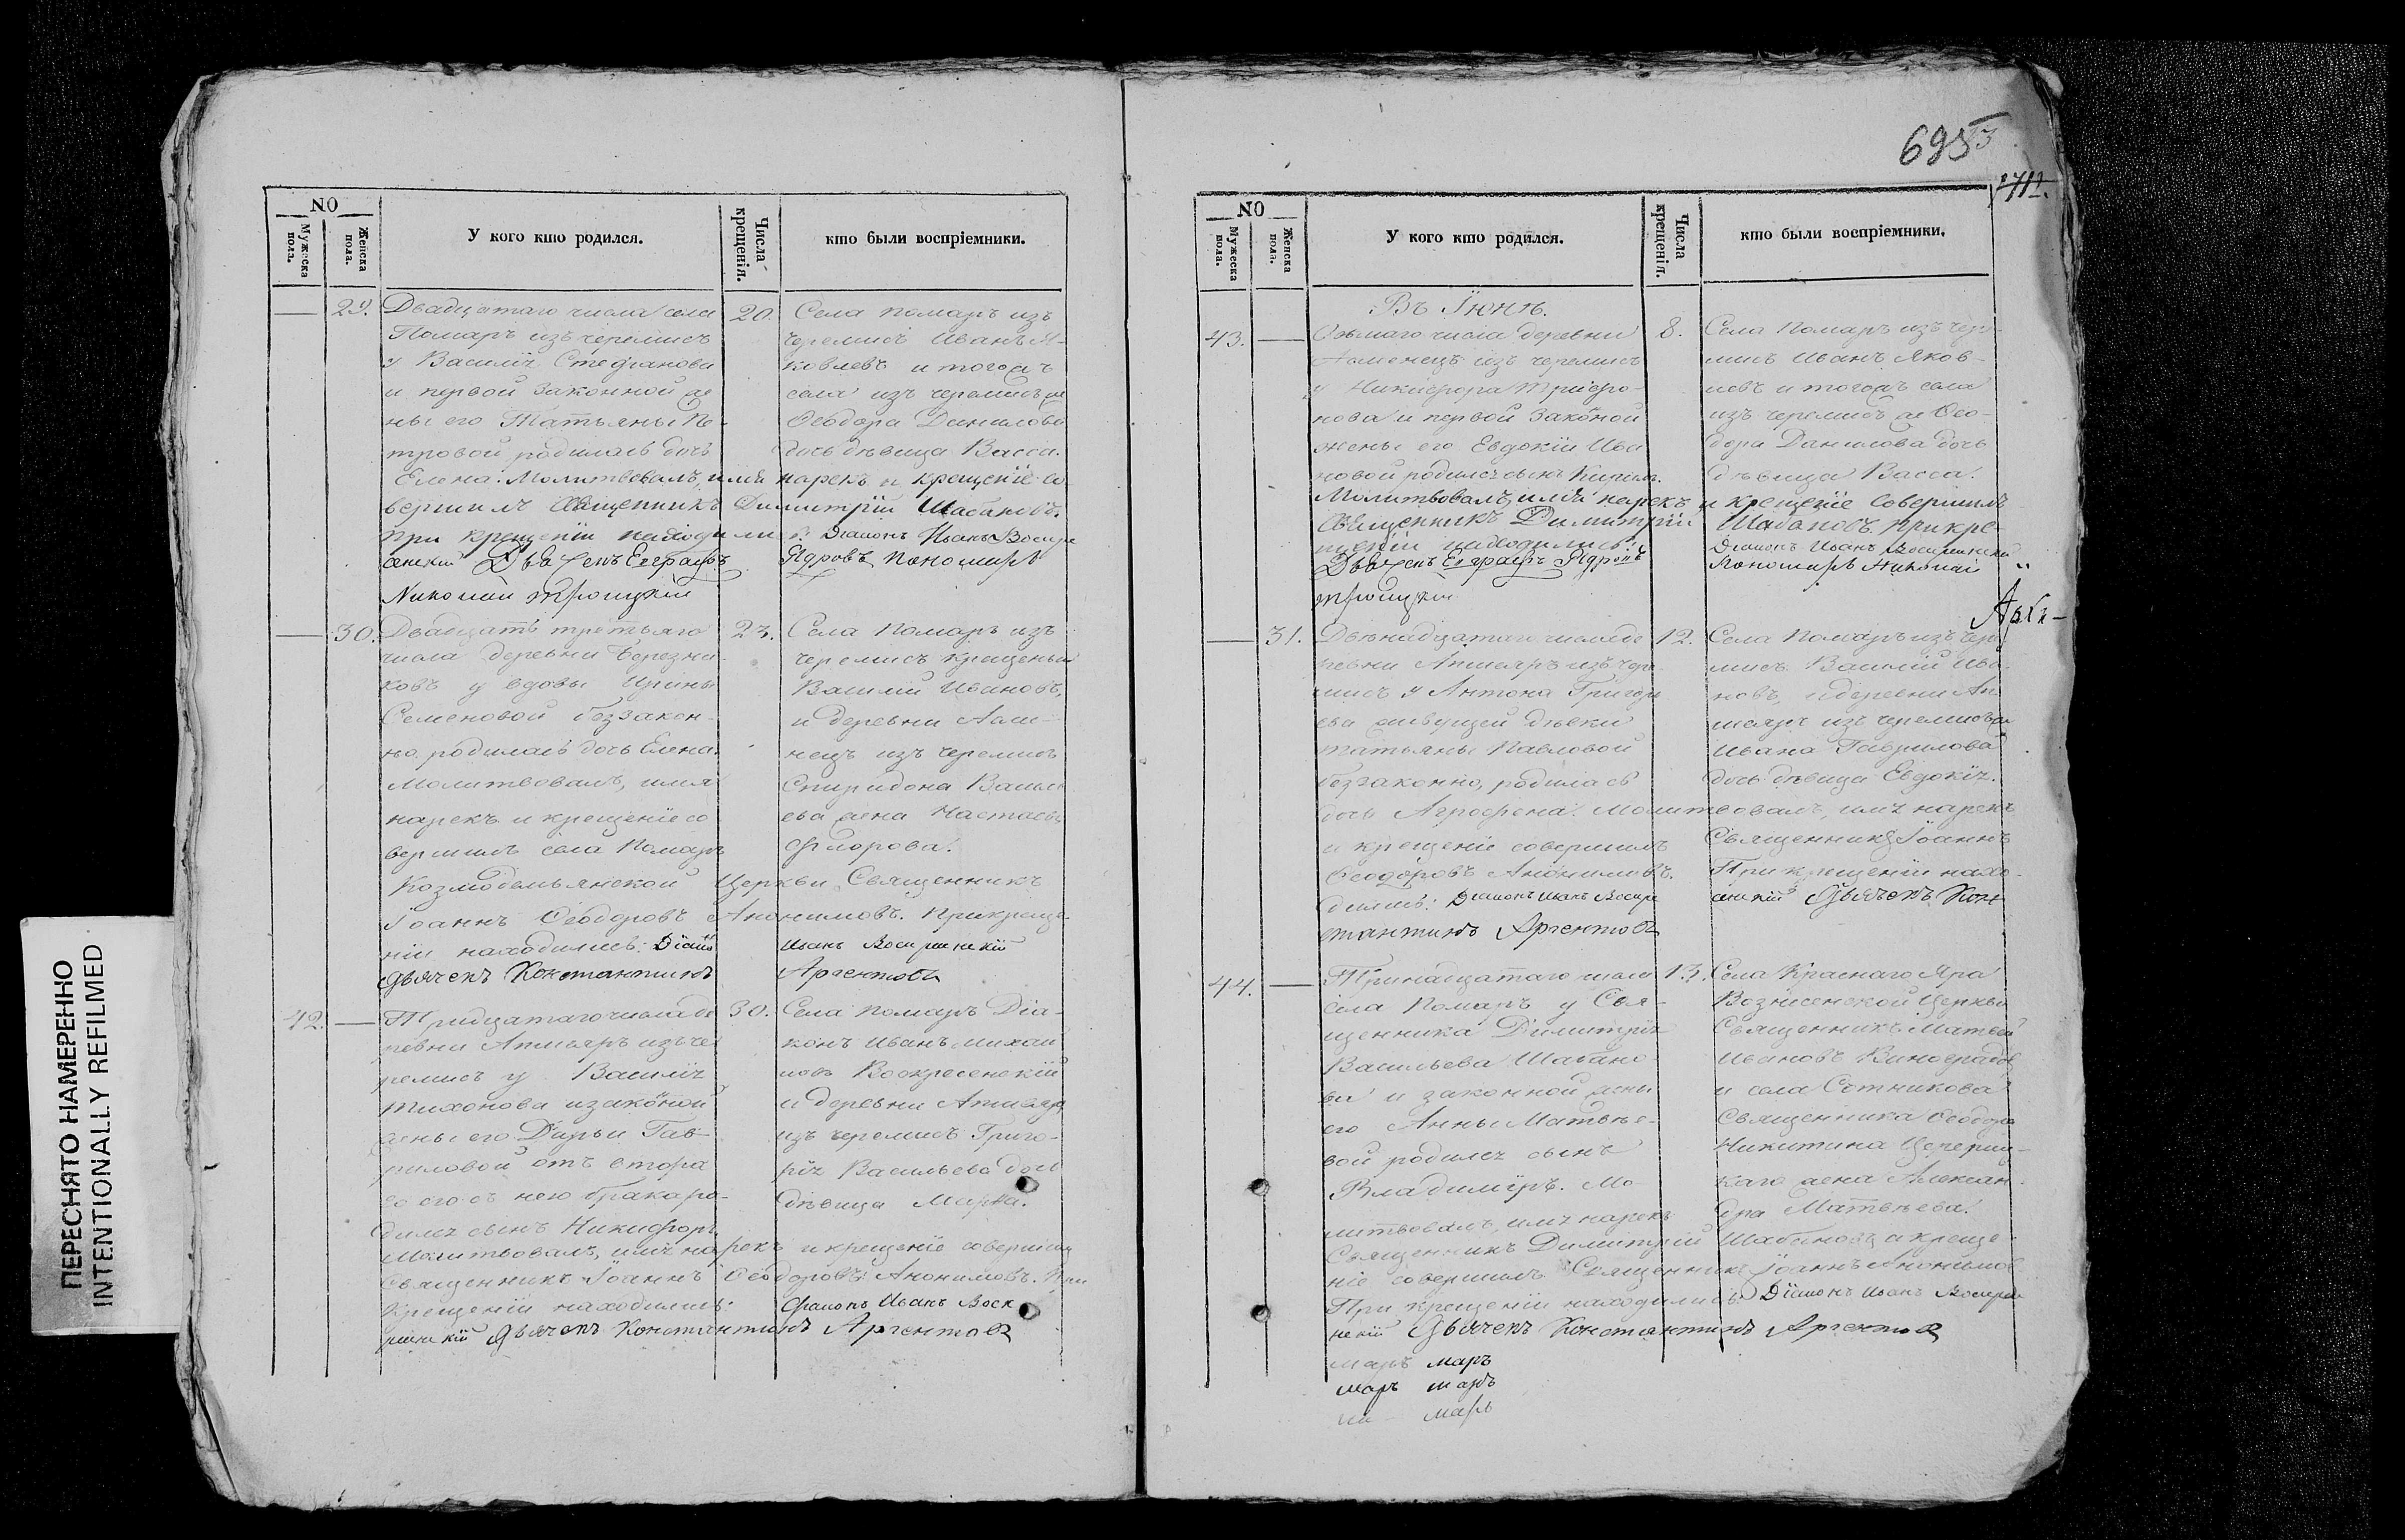 ПЕРЕСНЯТО НАМЕРЕННО
INTENTIONALLY REFILMED
NO
Мужеска пола.
Женска пола.
У кого кто родился.
Числа крещенія.
кто были воспріемники.
29.
Двадцатаго числа села
Помаръ изъ черемисъ
у Василія Стефанова
и первой законной же
ны его Татьяны Пе-
тровой родилась дочь
Елена. Молитвовалъ, имя нарекъ и крещеніе со
вершилъ Священникъ Димитрій Шабановъ.
при крещеніи находились: Діаконъ Иванъ Воскре
сенскій Дьячекъ Евграфъ Ядровъ Пономарь
Николай Троицкій
20.
Села Помаръ изъ
черемисъ Иванъ Я-
ковлевъ и тогожъ
села изъ черемисъ же
Ѳеодора Данилова
дочь дѣвица Васса.
30.
Двадцать третьяго
числа деревни Березни-
ковъ у вдовы Ирины
Семеновой беззакон-
но родилась дочь Елена.
Молитвовалъ, имя
нарекъ и крещеніе со
вершилъ села Помаръ
Козмодемьянской Церкви Священникъ
Іоаннъ Ѳеодоровъ Анонимовъ. При креще-
ніи находились: Діаконъ Иванъ Воскресенскій
Дьячекъ Константинъ Аргентовъ
23.
Села Помаръ изъ
черемисъ крещеный
Василій Ивановъ,
и деревни
нецъ изъ черемисъ
Спиридона Василь
ева жена Настасья
Флорова.
42.
Тридцатаго числа де
ревни Апшаяръ изъ че
ремисъ у Василія
Тихонова и законной
жены его Дарьи Гав-
риловой отъ втора
го его съ нею брака ро-
дился сынъ Никифоръ
Молитвовалъ, имя нарекъ и крещеніе совершилъ
Священникъ Іоаннъ Ѳеодоровъ Анонимовъ. При
крещеніи находились: Діаконъ Иванъ Воскре
сенскій Дьячекъ Константинъ Аргентовъ
30.
Села Помаръ Діа-
конъ Иванъ Михай
ловъ Воскресенскій
и деревни Апшаяръ
изъ черемисъ Григо-
рія Васильева дочь
дѣвица Марѳа.
695
NO
Мужеска пола.
Женска пола.
У кого кто родился.
Числа крещенія.
кто были воспріемники.
Въ Іюнѣ.
43.
Осьмаго числа деревни
изъ черемисъ
у Никифора Трифо-
нова и первой законой
жены его Евдокіи Ива
новой родился сынъ
Молитвовалъ, имя нарекъ и крещеніе совершилъ
Священникъ Димитрій Шабановъ. При кре-
щеніи находились: Діаконъ Иванъ Воскресенскій
Дьячекъ Евграфъ Ядровъ Пономарь Николай
Троицкій
8.
Села Помаръ изъ чере-
мисъ Иванъ Яков-
левъ и тогожъ села
изъ черемисъ же Ѳео-
дора Данилова дочь
дѣвица Васса.
31.
Двѣнадцатаго числа де
ревни Апшаяръ изъ чере-
мисъ у Антона Григорь
ева живущей дѣвки
Татьяны Павловой
беззаконно, родилась
дочь Агрофена. Молитвовалъ, имя нарекъ
и крещеніе совершилъ Священникъ Іоаннъ
Ѳеодоровъ Анонимовъ. При крещеніи нахо-
дились: Діаконъ Иванъ Воскре сенскій Дьячекъ Кон
стантинъ Аргентовъ
12.
Села Помаръ изъ чере
мисъ Василій Ива-
новъ, и деревни Ап
шаяръ изъ черемисъ же
Ивана Гаврилова
дочь дѣвица Евдокія.
44.
Тринадцатаго числа
села Помаръ у Свя-
щенника Димитрія
Васильева Шабано-
ва и законной жены
его Анны Матвѣе-
вой родился сынъ
Владиміръ. Мо-
литвовалъ, имя нарекъ
Священникъ Димитрій Шабановъ, а креще-
ніе совершилъ Священникъ Іоаннъ Анонимовъ
При крещеніи находились: Діаконъ Иванъ Воскресе
нскій Дьячекъ Константинъ Аргентовъ
13.
Села Краснаго Яра
Вознесенской Церкви
Священникъ Матвей
Ивановъ Виноградовъ
и села Сотникова
Священника Ѳеодора
Никитина
каго жена Алексан-
дра Матвѣева.
маръ маръ
маръ маръ
марь